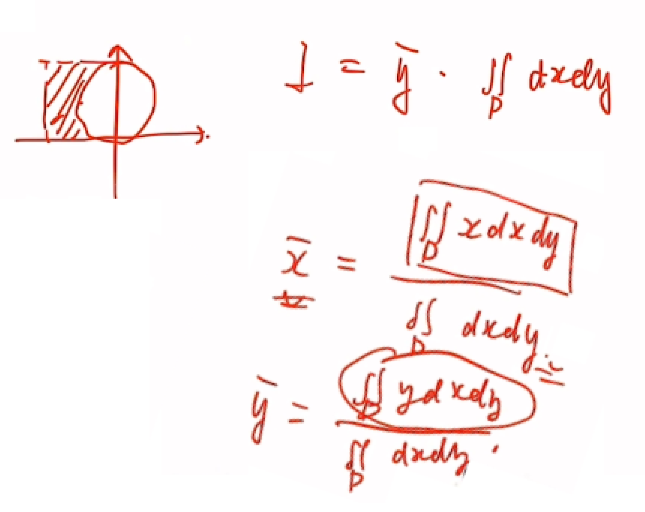 I = ȳ · ∬_D dxdy
x̄ = ∬_D x dx dy / ∬_D dxdy
ȳ = ∬_D y dxdy / ∬_D dxdy